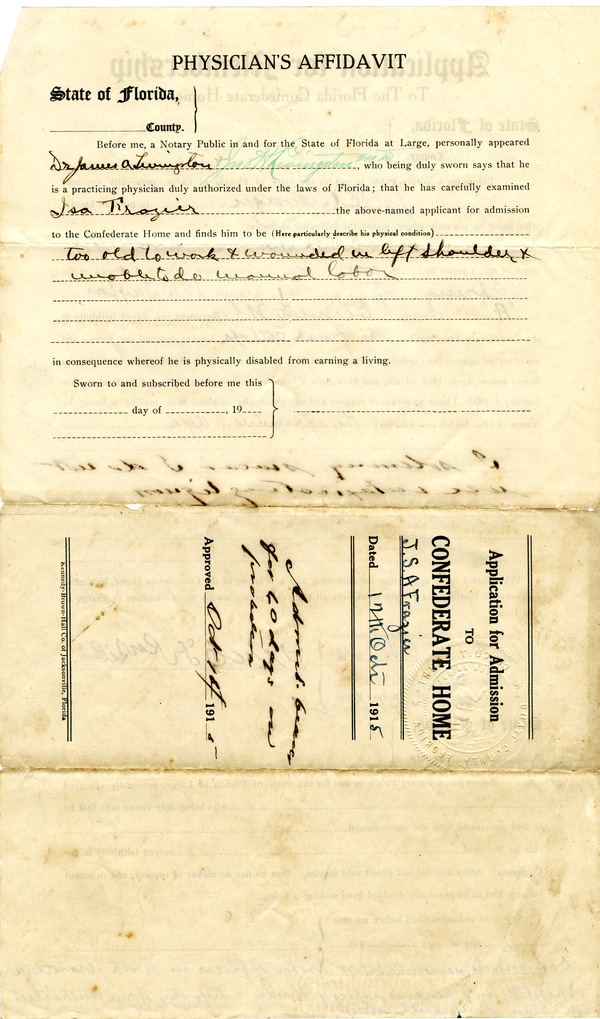 PHYSICIAN'S AFFIDAVIT
State of Florida,
County.
Before me, a Notary Public in and for the State of Florida at Large, personally appeared
Dr James A Livingston & Jno H Livingston MD, who being duly sworn says that he
is a practicing physician duly authorized under the laws of Florida; that he has carefully examined
Isa Frazier the above-named applicant for admission
to the Confederate Home and finds him to be (Here particularly describe his physical condition)
too old to work & wounded in left shoulder &
unable to do manual labor
in consequence whereof he is physically disabled from earning a living.
Sworn to and subscribed before me this
day of , 19
Application for Admission
TO
CONFEDERATE HOME
J. S A Frazier
Dated 12th Oct 1915
Admit bearer
for 60 days on
probation
Approved Oct 14 1915
Kennedy-Brown-Hall Co. of Jacksonville, Florida